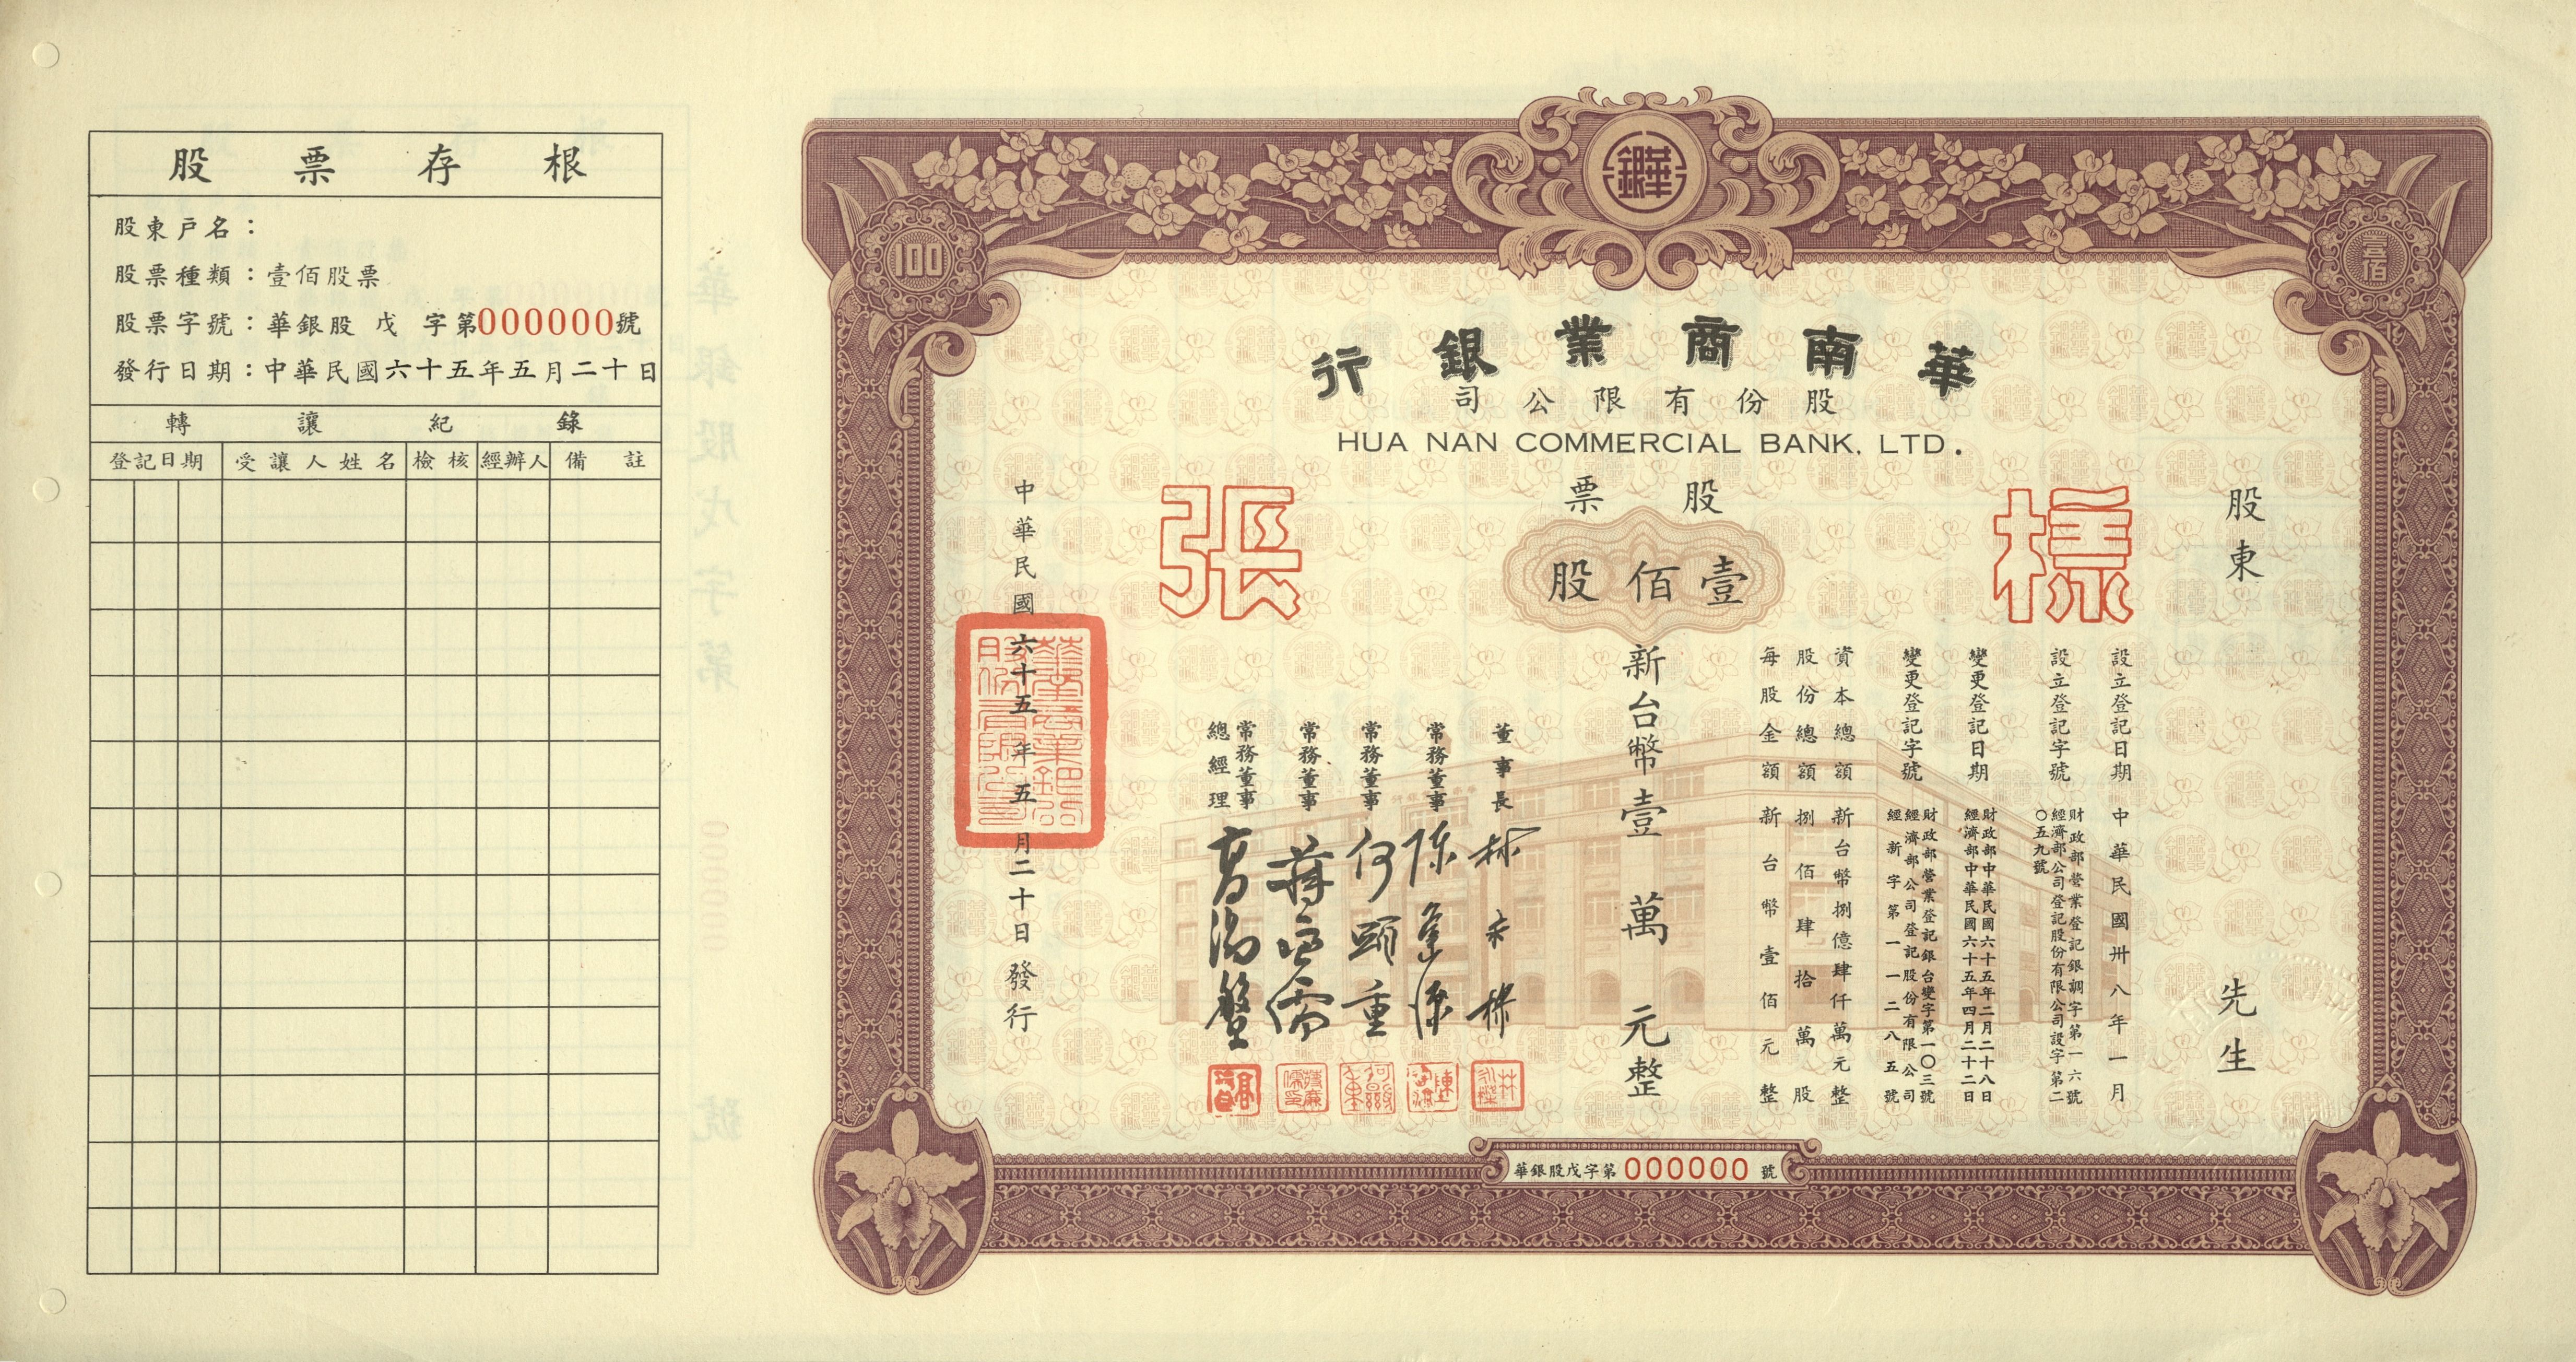 股票存根
股東戶名：
股票種類：壹佰股票
股票字號：華銀股 戊 字第000000號
發行日期：中華民國六十五年五月二十日
轉讓紀錄
登記日期 受讓人姓名 檢核 經辦人 備註
100
華銀
壹佰
華南商業銀行
股份有限公司
HUA NAN COMMERCIAL BANK, LTD.
股票
樣張
壹佰股
股東 先生
設立登記日期 中華民國卅八年一月
設立登記字號 財政部營業登記銀調字第一六號
經濟部公司登記股份有限公司設字第二〇五九號
變更登記日期 財政部中華民國六十五年二月二十八日
經濟部中華民國六十五年四月二十二日
變更登記字號 財政部營業登記銀台變字第一〇三號
經濟部公司登記股份有限公司
經新字第一一二八五號
資本總額 新台幣捌億肆仟萬元整
股份總額 捌佰肆拾萬股
每股金額 新台幣壹佰元整
新台幣壹萬元整
董事長 林永樑
常務董事 陳逢源
常務董事 何顯重
常務董事 蔣廉儒
常務董事
總經理 高湯盤
中華民國六十五年五月二十日發行
華南商業銀行股份有限公司
華銀股戊字第000000號